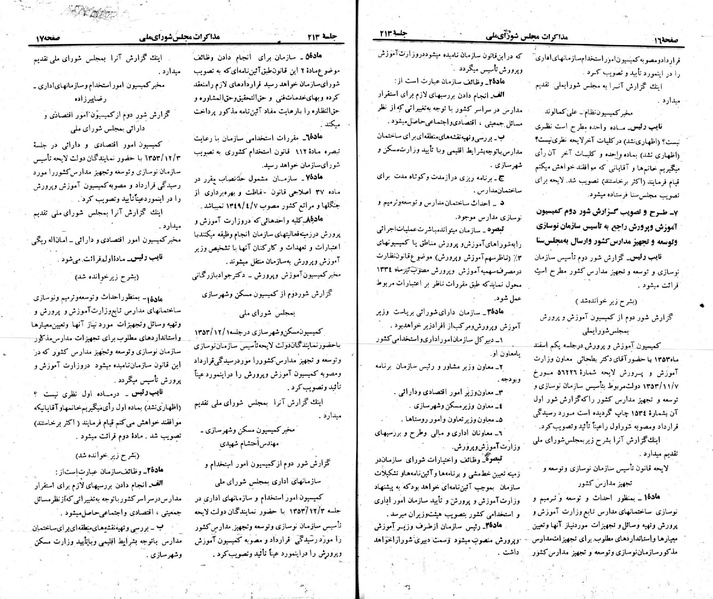 صفحه ۱۶
مذاکرات مجلس شورای ملی
جلسه ۲۱۳
قرارداد و مصوبه کمیسیون امور استخدام و سازمانهای اداری
را در اینمورد تأیید و تصویب کرد.
اینک گزارش آنرا به مجلس شورایملی تقدیم
میدارد.
مخبر کمیسیون نظام ـ علی کمالوند
نایب رئیس ـ ماده واحده مطرح است نظری
نیست؟ (اظهاری نشد) بماده واحده و کلیات آخر آن رأی
میگیریم خانمها و آقایانی که موافقند خواهش میکنم
قیام فرمایند (اکثر برخاستند) تصویب شد. لایحه برای
تصویب مجلس سنا فرستاده میشود.
۷ـ طرح و تصویب گزارش شور دوم کمیسیون
آموزش و پرورش راجع به تأسیس سازمان نوسازی
و توسعه و تجهیز مدارس کشور و ارسال به مجلس سنا
نایب رئیس ـ گزارش شور دوم لایحه تأسیس سازمان
نوسازی و توسعه و تجهیز مدارس کشور مطرح است
قرائت میشود.
(بشرح زیر خوانده شد)
گزارش شور دوم از کمیسیون آموزش و پرورش
به مجلس شورایملی
کمیسیون آموزش و پرورش در جلسه یکم اسفند
ماه ۱۳۵۳ با حضور آقای دکتر بطحائی معاون وزارت
آموزش و پرورش لایحه شماره ۵۶۲۲۹ مورخ
۱۳۵۳/۱۱/۷ دولت مربوط بتأسیس سازمان نوسازی و
توسعه و تجهیز مدارس کشور را که گزارش شور اول
آن بشماره ۱۵۳۴ چاپ گردیده است مورد رسیدگی
قرارداد و مصوبه شور اول را عیناً تأیید و تصویب کرد.
اینک گزارش آنرا بشرح زیر به مجلس شورای ملی
تقدیم میدارد.
لایحه قانون تأسیس سازمان نوسازی و توسعه و
تجهیز مدارس کشور
ماده۱ـ بمنظور احداث و توسعه و ترمیم و
نوسازی ساختمانهای مدارس تابع وزارت آموزش و
پرورش و تهیه وسائل و تجهیزات مورد نیاز آنها و تعیین
معیارها و استانداردهای مطلوب برای تجهیزات مدارس
مذکور سازمان نوسازی و توسعه و تجهیز مدارس کشور
که در این قانون سازمان نامیده میشود در وزارت آموزش و
پرورش تأسیس میگردد.
ماده۲ـ وظائف سازمان عبارت است از:
الف. انجام دادن بررسیهای لازم برای استقرار
مدارس در سراسر کشور با توجه به تغییراتی که از نظر
مسائل جمعیتی، اقتصادی و اجتماعی حاصل میشود.
ب ـ بررسی و تهیه نقشه‌های منطقه‌ای برای ساختمان
مدارس با توجه بشرایط اقلیمی و با تأیید وزارت مسکن و
شهرسازی.
ج ـ برنامه ریزی دراز مدت و کوتاه مدت برای
ساختمان مدارس.
د ـ احداث ساختمان مدارس و توسعه و ترمیم و
نوسازی مدارس موجود.
تبصره ـ سازمان میتواند مباشرت عملیات اجرائی
را به شوراهای آموزش و پرورش مناطق یا کمیسیونهای
۳٪ (ناظر سهم آموزش و پرورش) موضوع قانون نظارت
در مصرف سهمیه آموزش و پرورش مصوب تیر ماه ۱۳۳۴
محول نماید که طبق مقررات ناظر بر اعتبارات مربوط
عمل شود.
ماده۳ـ سازمان دارای شورائی بریاست وزیر
آموزش و پرورش و مرکب از افراد زیر خواهد بود.
۱ـ دبیر کل سازمان امور اداری و استخدامی کشور
یا معاون او.
۲ـ معاون وزیر مشاور و رئیس سازمان برنامه
و بودجه.
۳ـ معاون وزیر امور اقتصادی و دارائی.
۴ـ معاون وزیر مسکن و شهرسازی.
۵ـ معاون وزیر تعاون و امور روستاها.
۶ـ معاونان اداری و مالی و طرح و بررسیهای
وزارت آموزش و پرورش.
تبصره ـ وظائف و اختیارات شورای سازمان در
زمینه تعیین خط‌مشی و برنامه‌ها و آئین‌نامه‌ها و تشکیلات
سازمان بموجب آئین‌نامه‌ای خواهد بود که به پیشنهاد
وزارت آموزش و پرورش و تأیید سازمان امور اداری
و استخدامی کشور بتصویب هیئت وزیران میرسد.
ماده۴ـ رئیس سازمان از طرف وزیر آموزش
و پرورش منصوب میشود و سمت دبیری شورا را خواهد
داشت.
جلسه ۲۱۳
مذاکرات مجلس شورای ملی
صفحه ۱۷
ماده۵ـ سازمان برای انجام دادن وظائف
موضوع ماده ۲ این قانون طبق آئین‌نامه‌ای که به تصویب
شورای سازمان خواهد رسید قراردادهای لازم را منعقد
کرده و بهای خدمات فنی و حق‌التحقیق و حق‌المشاوره و
حق‌النظاره را با رعایت مفاد آئین‌نامه مذکور پرداخت
میکند.
ماده۶ـ مقررات استخدامی سازمان با رعایت
تبصره ماده ۱۱۲ قانون استخدام کشوری به تصویب
شورای سازمان خواهد رسید.
ماده۷ـ سازمان مشمول حد نصاب مقرر در
ماده ۳۷ اصلاحی قانون حفاظت و بهره‌برداری از
جنگلها و مراتع کشور مصوب ۱۳۴۹/۴/۷ نمیباشد.
ماده۸ـ کلیه واحدهائی که در وزارت آموزش و
پرورش در زمینه فعالیتهای سازمان انجام وظیفه میکنند با
اعتبارات و تعهدات و کارکنان آنها با تشخیص وزیر
آموزش و پرورش به سازمان منتقل میشوند.
مخبر کمیسیون آموزش و پرورش ـ دکتر جواد بازرگانی
گزارش شور دوم از کمیسیون مسکن و شهرسازی
به مجلس شورای ملی
کمیسیون مسکن و شهرسازی در جلسه ۱۳۵۳/۱۲/۱
با حضور نمایندگان دولت لایحه تأسیس سازمان نوسازی
و توسعه و تجهیز مدارس کشور را مورد رسیدگی قرارداد
و مصوبه کمیسیون آموزش و پرورش را در اینمورد عیناً
تأیید و تصویب کرد.
اینک گزارش آنرا به مجلس شورای ملی تقدیم
میدارد.
مخبر کمیسیون مسکن و شهرسازی ـ
مهندس احتشام شهیدی
گزارش شور دوم از کمیسیون امور استخدام و
سازمانهای اداری به مجلس شورای ملی
کمیسیون امور استخدام و سازمانهای اداری در
جلسه ۱۳۵۳/۱۲/۳ با حضور نمایندگان دولت لایحه
تأسیس سازمان نوسازی و توسعه و تجهیز مدارس کشور
را مورد رسیدگی قرارداد و مصوبه کمیسیون آموزش
و پرورش را در اینمورد عیناً تأیید و تصویب کرد.
اینک گزارش آنرا به مجلس شورای ملی تقدیم
میدارد.
مخبر کمیسیون امور استخدام و سازمانهای اداری ـ
رضا پیرزاده
گزارش شور دوم از کمیسیون امور اقتصادی و
دارائی به مجلس شورای ملی
کمیسیون امور اقتصادی و دارائی در جلسه
۱۳۵۳/۱۲/۳ با حضور نمایندگان دولت لایحه تأسیس
سازمان نوسازی و توسعه و تجهیز مدارس کشور را مورد
رسیدگی قرارداد و مصوبه کمیسیون آموزش و پرورش
را در اینمورد عیناً تأیید و تصویب کرد.
اینک گزارش آنرا به مجلس شورای ملی تقدیم
میدارد.
مخبر کمیسیون امور اقتصادی و دارائی ـ امان‌اله ریگی
نایب رئیس ـ ماده اول قرائت می‌شود.
(بشرح زیر خوانده شد)
ماده۱ـ بمنظور احداث و توسعه و ترمیم و نوسازی
ساختمانهای مدارس تابع وزارت آموزش و پرورش و
تهیه وسائل و تجهیزات مورد نیاز آنها و تعیین معیارها
و استانداردهای مطلوب برای تجهیزات مدارس مذکور
سازمان نوسازی و توسعه و تجهیز مدارس کشور که در
این قانون سازمان نامیده میشود در وزارت آموزش و
پرورش تأسیس میگردد.
نایب رئیس ـ در ماده اول نظری نیست؟
(اظهاری نشد) بماده اول رأی میگیریم خانمها و آقایانیکه
موافقند خواهش می‌کنم قیام فرمایند (اکثر برخاستند)
تصویب شد. ماده دوم قرائت میشود.
(بشرح زیر خوانده شد)
ماده۲ـ وظائف سازمان عبارت است از:
الف. انجام دادن بررسیهای لازم برای استقرار
مدارس در سراسر کشور با توجه به تغییراتی که از نظر مسائل
جمعیتی، اقتصادی و اجتماعی حاصل میشود.
ب ـ بررسی و تهیه نقشه‌های منطقه‌ای برای ساختمان
مدارس با توجه به شرایط اقلیمی و با تأیید وزارت مسکن
و شهرسازی.